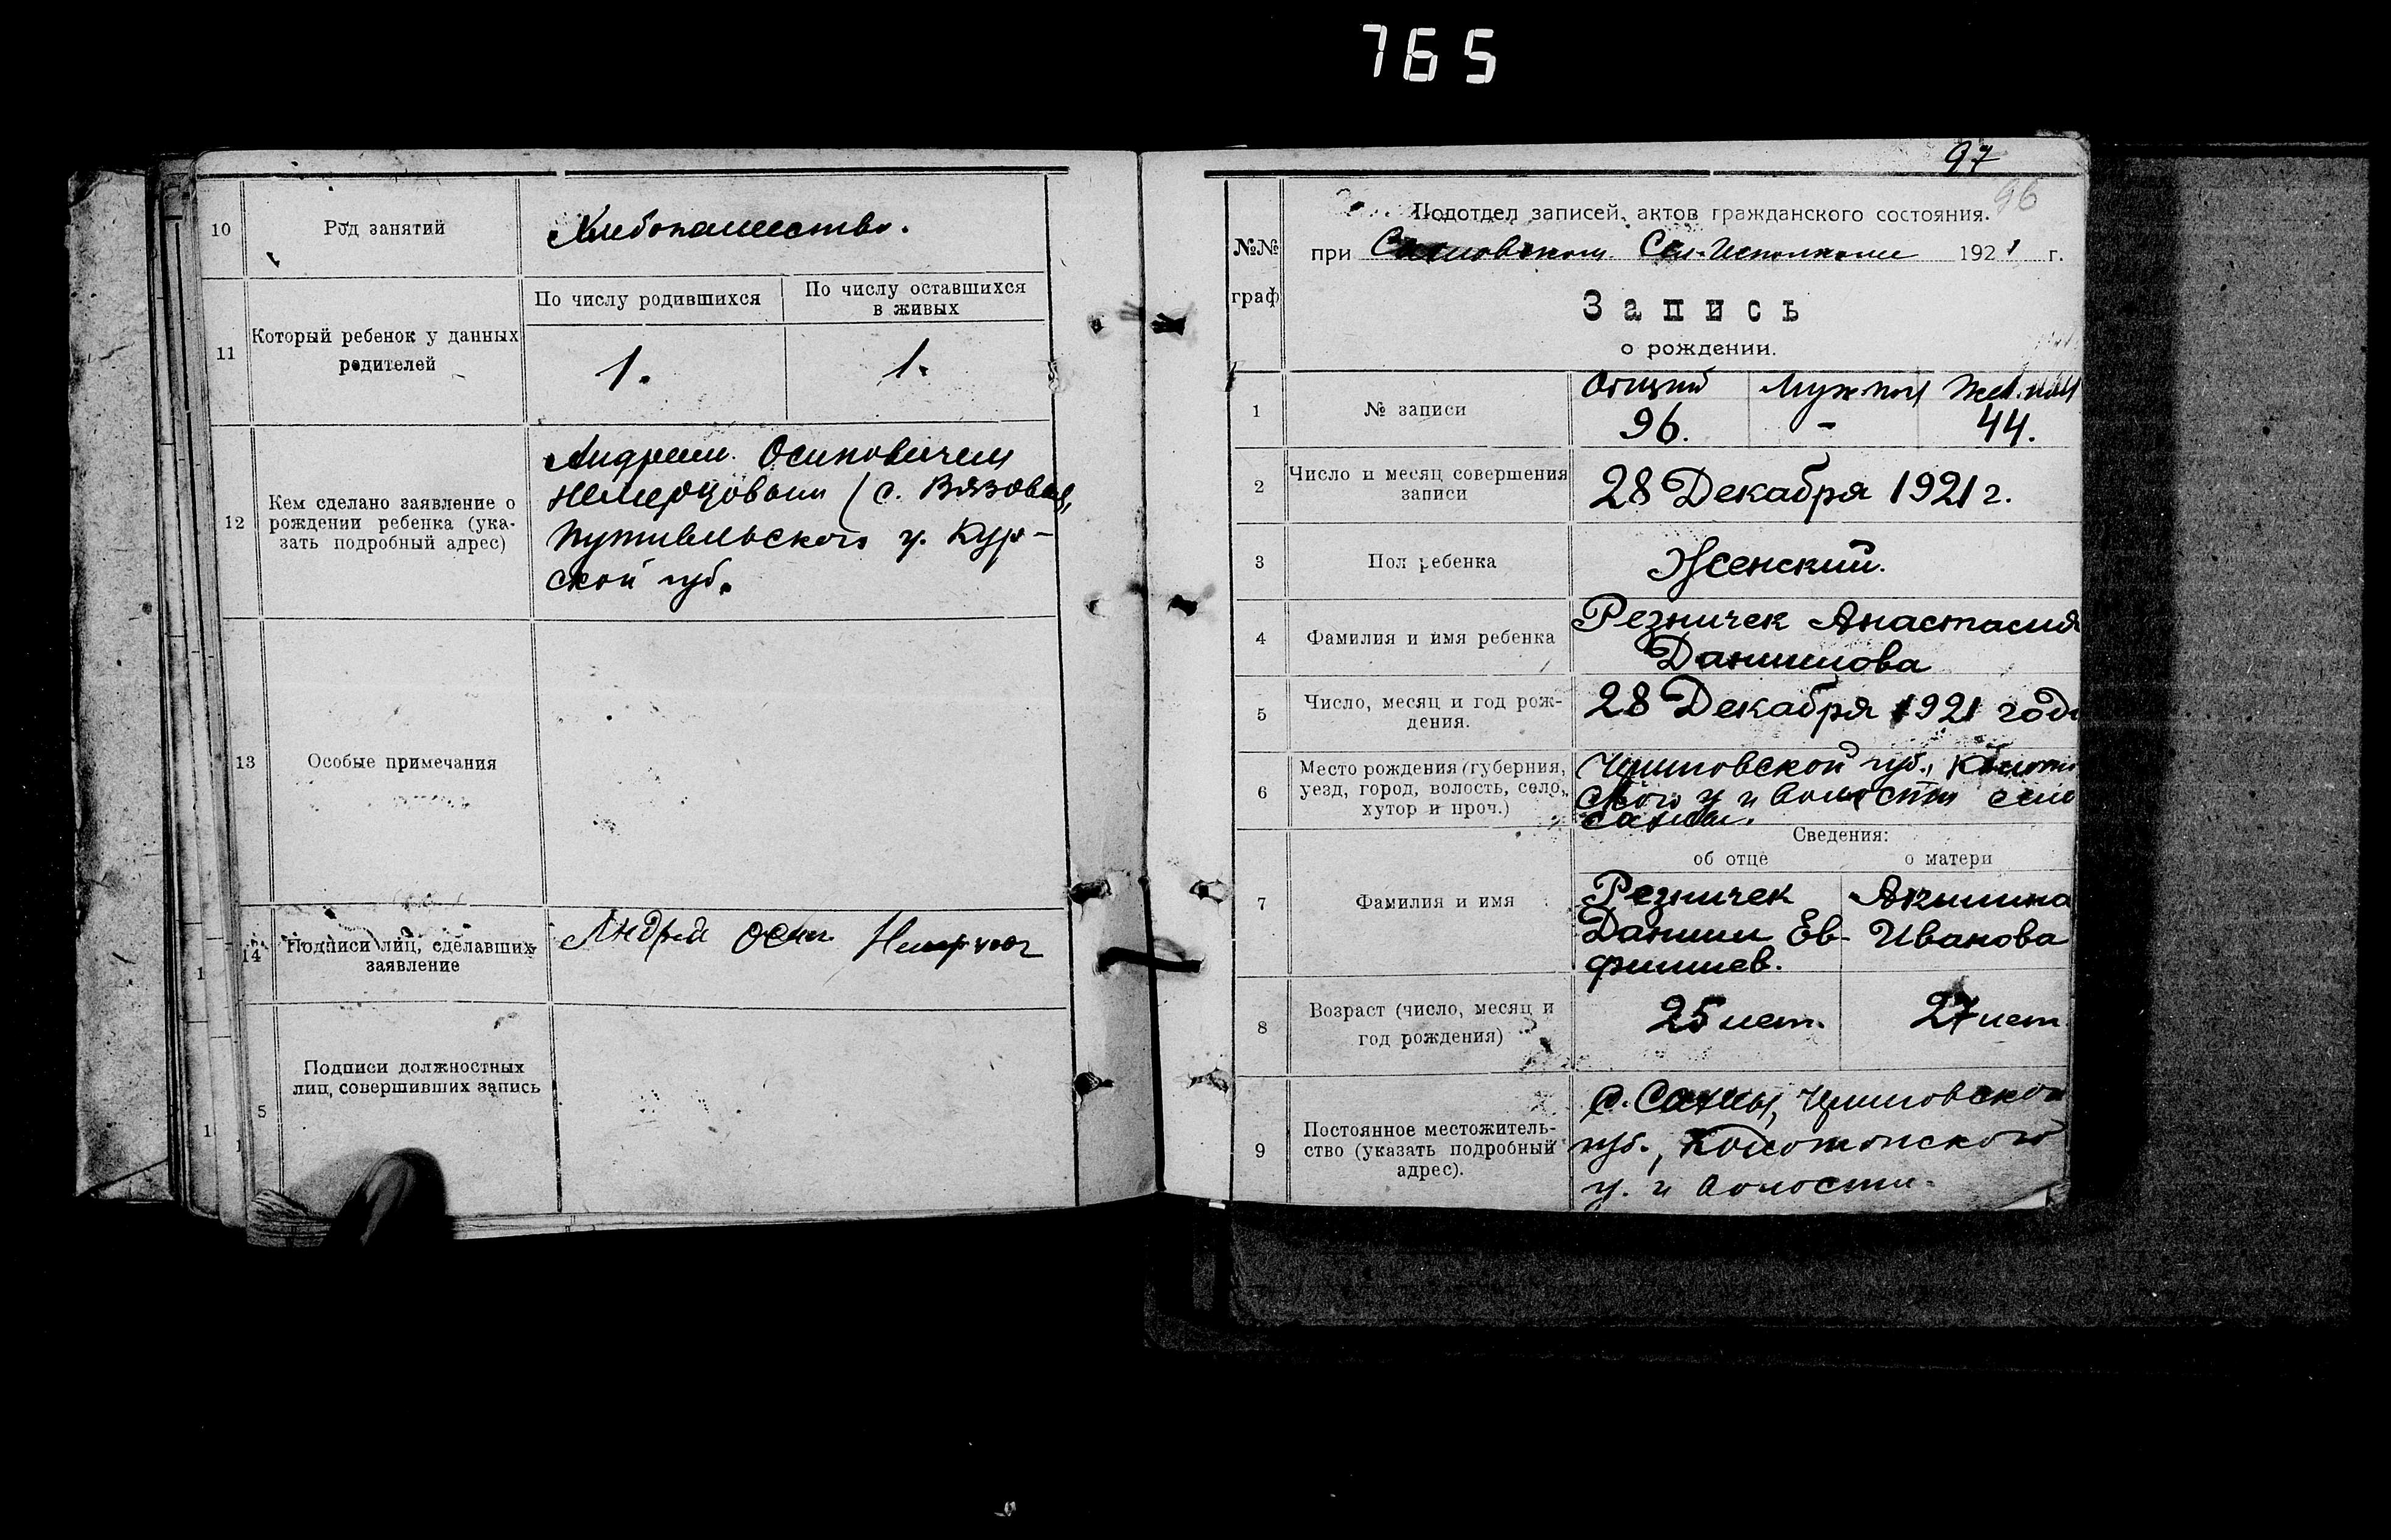 765
10
Род занятий
Хлебопашество.
11
Который ребенок у данных
родителей
По числу родившихся
По числу оставшихся
в живых
1.
1.
12
Кем сделано заявление о
рождении ребенка (ука-
зать подробный адрес)
Андреем Осиповичем
Немерцовым (с. Вязовое,
Путивльского у. Кур-
ской губ.
13
Особые примечания
14
Подписи лиц, сделавших
заявление
Андрей Осип
5
Подписи должностных
лиц, совершивших запись
97
96
№№
граф
Подотдел записей актов гражданского состояния.
при Сахновском Сел-Исполкоме 1921 г.
Запись
о рождении.
1
№ записи
Общий Муж пол Жен. пол
96. - 44.
2
Число и месяц совершения
записи
28 Декабря 1921 г.
3
Пол ребенка
Женский.
4
Фамилия и имя ребенка
Резничек Анастасия
Данилова
5
Число, месяц и год рож-
дения.
28 Декабря 1921 года
6
Место рождения (губерния,
уезд, город, волость, село,
хутор и проч.)
Черниговской губ., Коното
ского у и волости село
Сахны.
Сведения:
об отце
о матери
7
Фамилия и имя
Резничек
Даниил Ев-
филиев.
Акилина
Иванова
8
Возраст (число, месяц и
год рождения)
25 лет.
27 лет
9
Постоянное местожитель-
ство (указать подробный
адрес).
с. Сахны, Черниговской
губ., Конотопского
у. и волости.